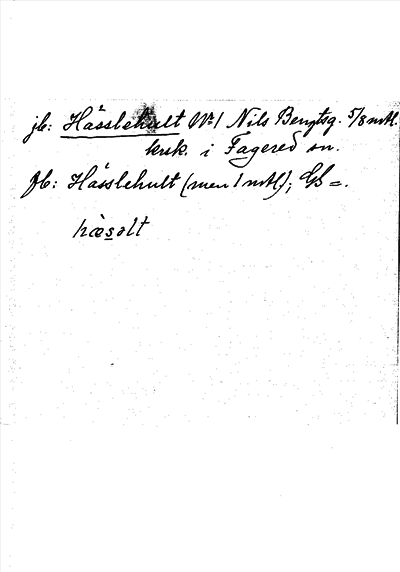 jb: Hässlehult No 1 Nils Bengtsg. 5/8 mtl.
krsk. i Fagered sn.
fb: Hässlehult (men 1 mtl); GS =.
hæ̀səlt